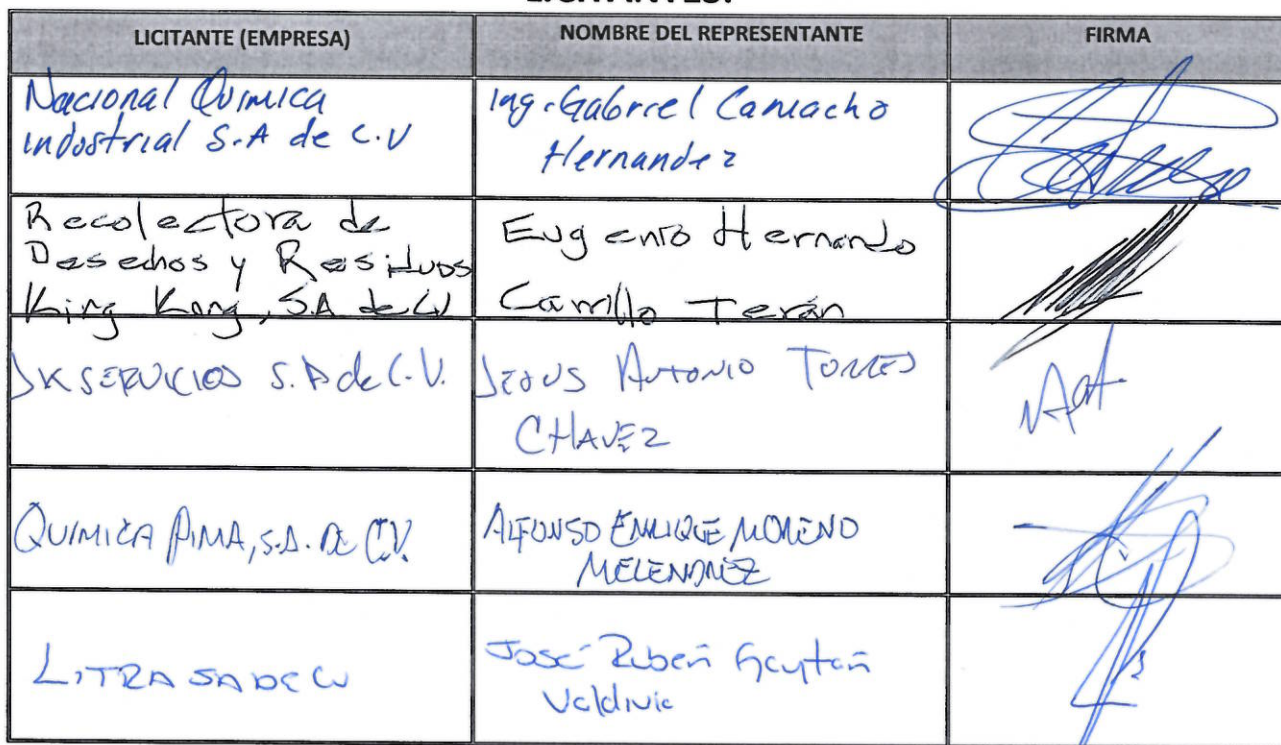 LICITANTE (EMPRESA) NOMBRE DEL REPRESENTANTE FIRMA
Nacional Quimica Ing. Gabriel Camacho
industrial S.A de C.V Hernandez
Recolectora de Eugenio Hernando
Desechos y Residuos
King Kong, SA de CV Carrillo Terán
JK SERVICIOS S.A de C.V. JESUS ANTONIO TORRES
CHAVEZ
QUIMICA PIMA, S.A. DE C.V. ALFONSO ENRIQUE MORENO
MELENDREZ
LITRA SA DE CV José Rubén Gaytán
Valdivia